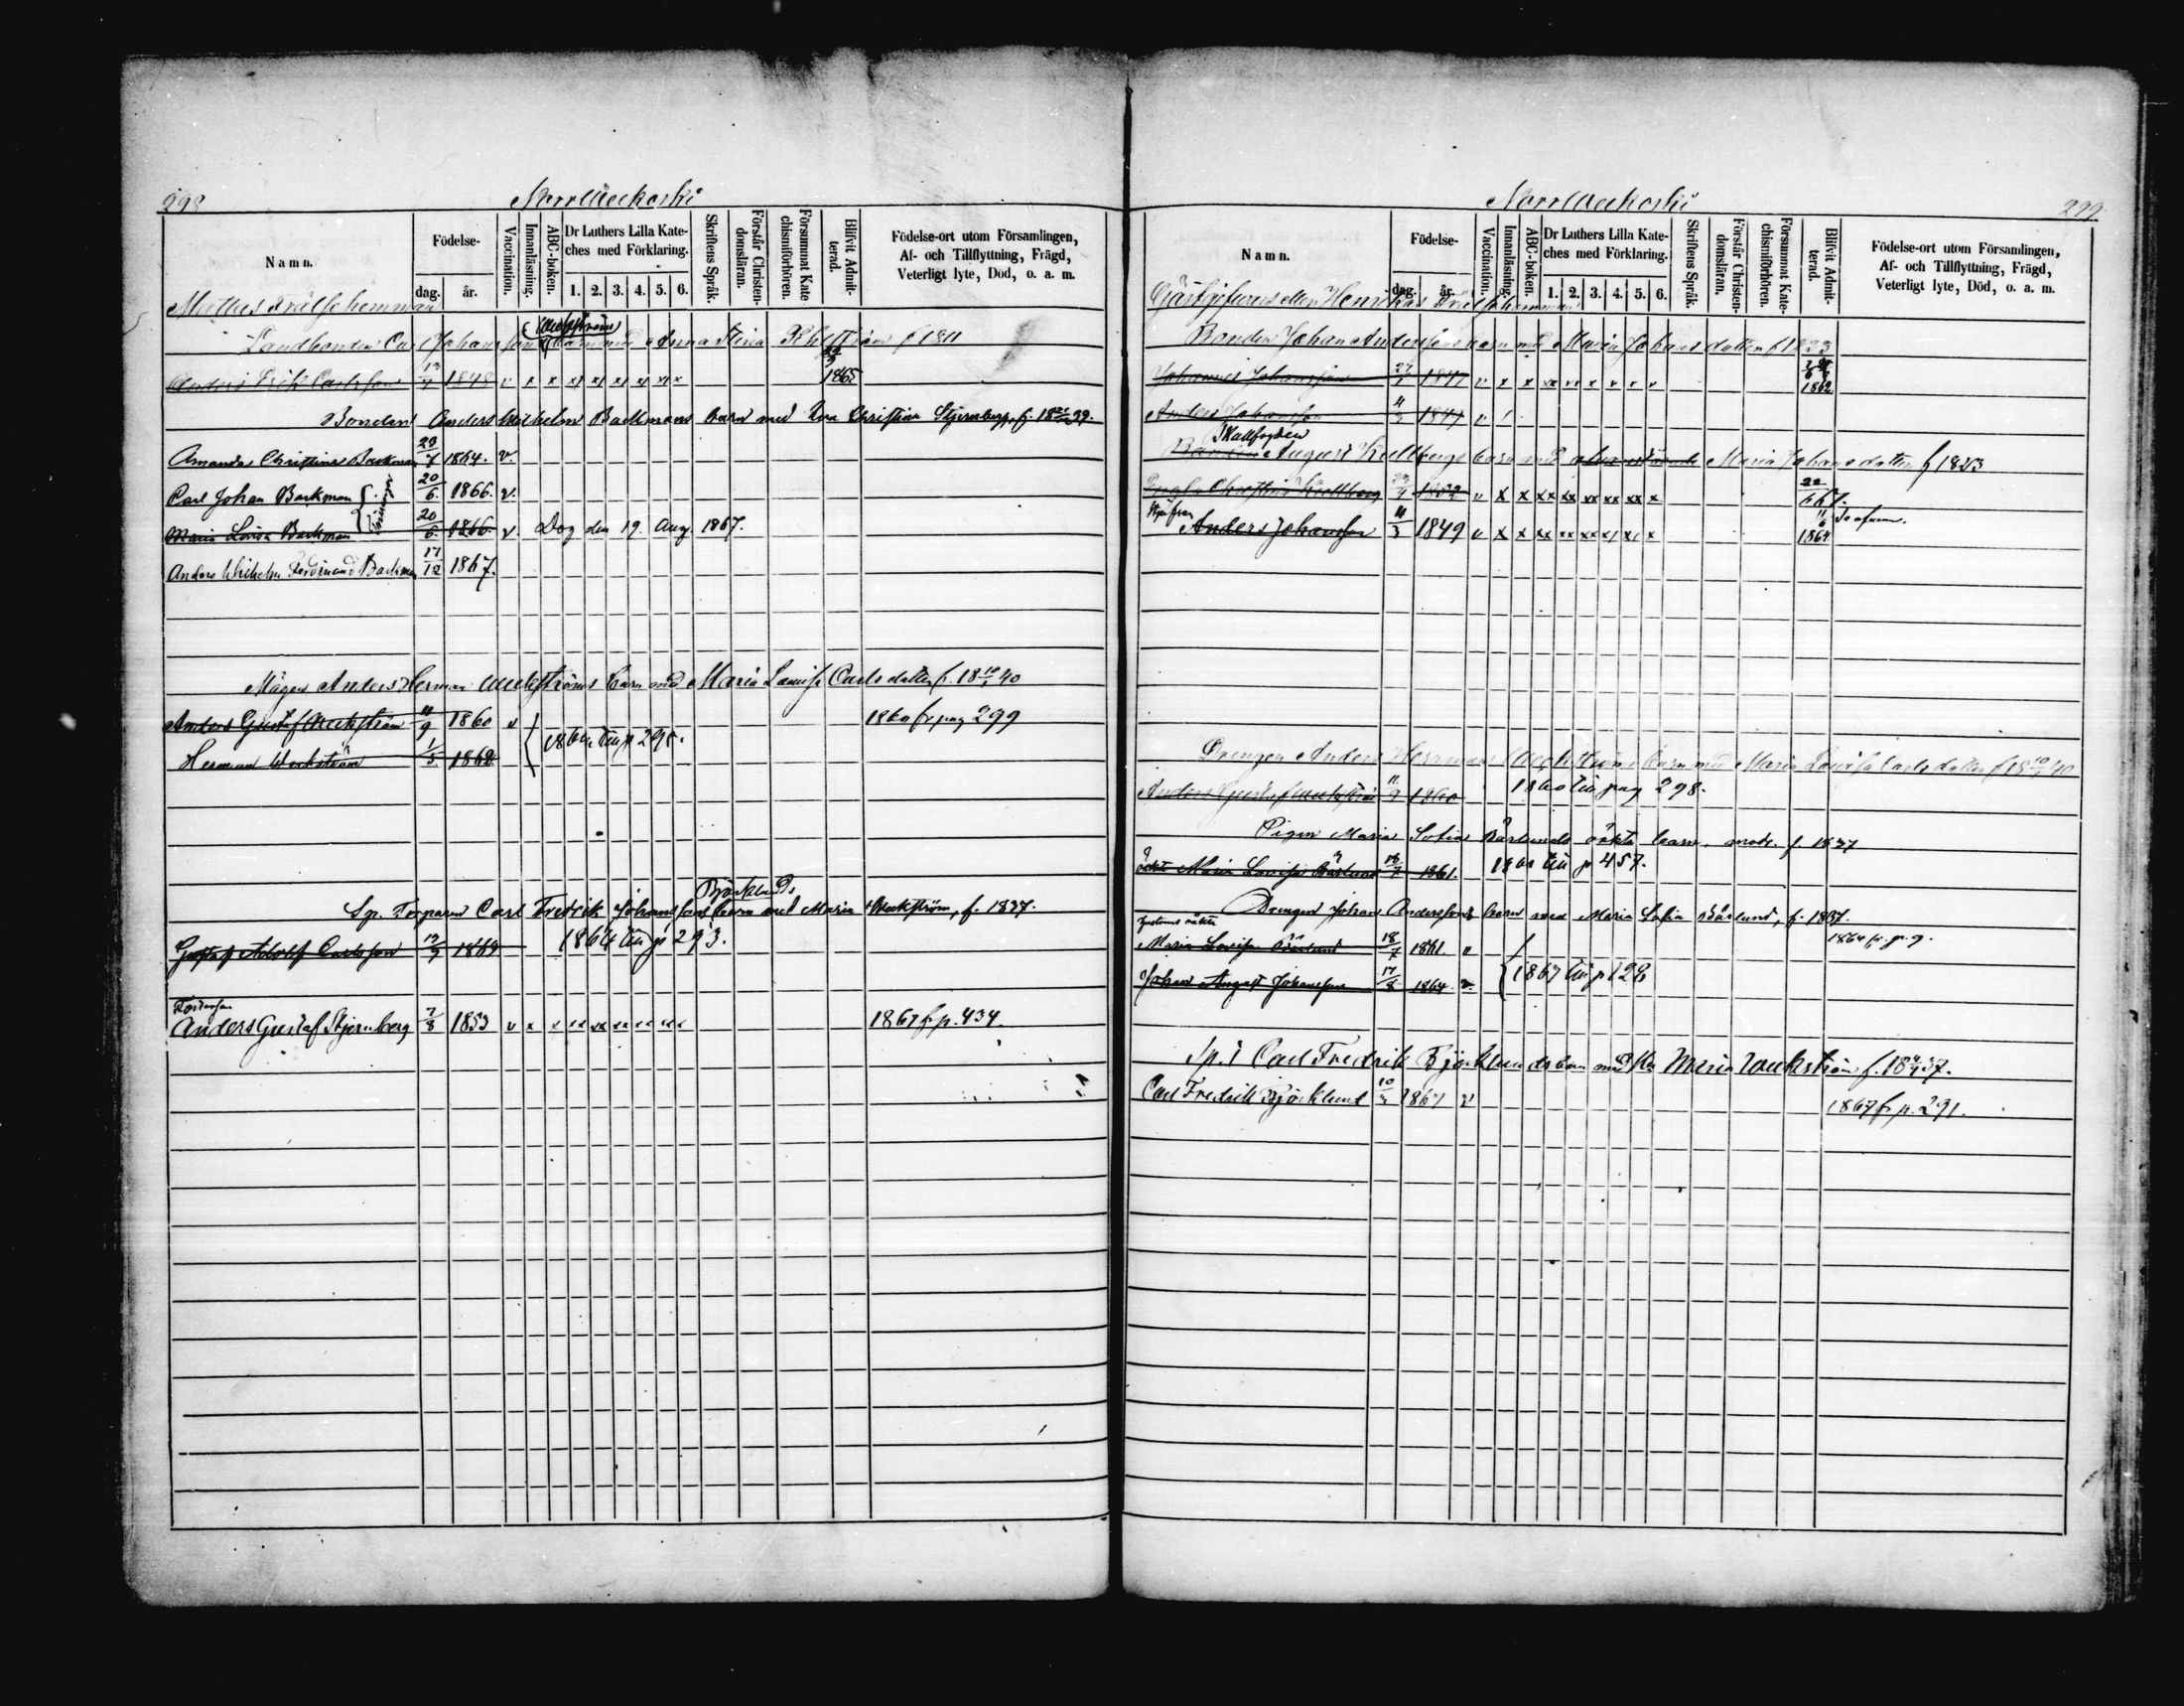 298
Norrweckoski
Namn.
Födelse-
dag.
år.
Vaccination.
Innanläsning.
ABC-boken.
Dr Luthers Lilla Kate-
ches med Förklaring.
1. 2. 3. 4. 5. 6.
Skriftens Språk.
Förstår Christen-
domsläran.
Försummat Kate
chismiförhören.
Blifvit Admit-
terad.
Födelse-ort utom Församlingen,
Af- och Tillflyttning, Frägd,
Veterligt lyte, Död, o. a. m.
frälsehemman
Landbonden Carl Johansson barn med Anna Stina f 1811
Anders Erik Carlsson 1848 v x x x x x x x x 1865
Bonden Anders Wilhelm Backmans barn med Christina Stjernberg, f. 18 39.
Amanda Christina Backman 23/7 1864. v.
Carl Johan Backman 20/6. 1866. v.
Maria Lovisa Backman 20/6. 1866. v Dog den 19. Aug. 1867.
Anders Wilhelm Ferdinand Backman 17/12 1867.
Mågen Anders Herman Weckströms barn med Maria Lovisa Carlsdotter f. 18 40
Anders Gustaf Weckström 11/9 1860 v 1860 fr pag 299
Herman Weckström 1/5 1862 till p 295.
Björklunds
Sp. Torparen Carl Fredrik Johanssons barn med Maria Weckström, f. 1837.
Gustaf Adolf Carlsson 1864 till p 293.
Fosterson
Anders Gustaf Stjernberg 7/8 1853 v x x xx xx xx xx xx 1867 fr p. 434.
Norrweckoski
299
Namn.
Födelse-
dag.
år.
Vaccination.
Innanläsning.
ABC-boken.
Dr Luthers Lilla Kate-
ches med Förklaring.
1. 2. 3. 4. 5. 6.
Skriftens Språk.
Förstår Christen-
domsläran.
Försummat Kate-
chismiförhören.
Blifvit Admit-
terad.
Födelse-ort utom Församlingen,
Af- och Tillflyttning, Frägd,
Veterligt lyte, Död, o. a. m.
Gästgifvars eller Henrikas frälsehemman
Bonden Johan Anderssons barn med Maria Johansdotter f 1823
Johannes Johansson 1847 v x x xx xx x x x v 1862
Anders Johansson
August Kullbergs barn med Maria Johansdotter f 1823
Christina Kullberg v x x xx xx xx xx xx x 22/6 67.
Anders Johansson 11/3 1849 v x x xx xx xx x x x 1864
Drengen Anders Hermans Weckströms barn med Maria Lovisa Carlsdotter f 18 40
Anders Gustaf Weckström 11/9 1860 1860 till pag 298.
Pigan Maria Sofia Bärlunds oäkta barn. modr. f. 1837
oäkta Maria Lovisa Bärlund 18/7 1861. till p 457.
Drengen Johan Anderssons barn med Maria Sofia Bärlund, f. 1837.
Maria Lovisa Bärlund 18/7 1861. v 1864 fr.
Johan August Johansson 17/8 1864. v. 1867 till p 128
Carl Fredrik Björklunds barn med Maria Weckström f. 18 37.
Carl Fredrik Björklund 1867 v 1867 fr p. 291.